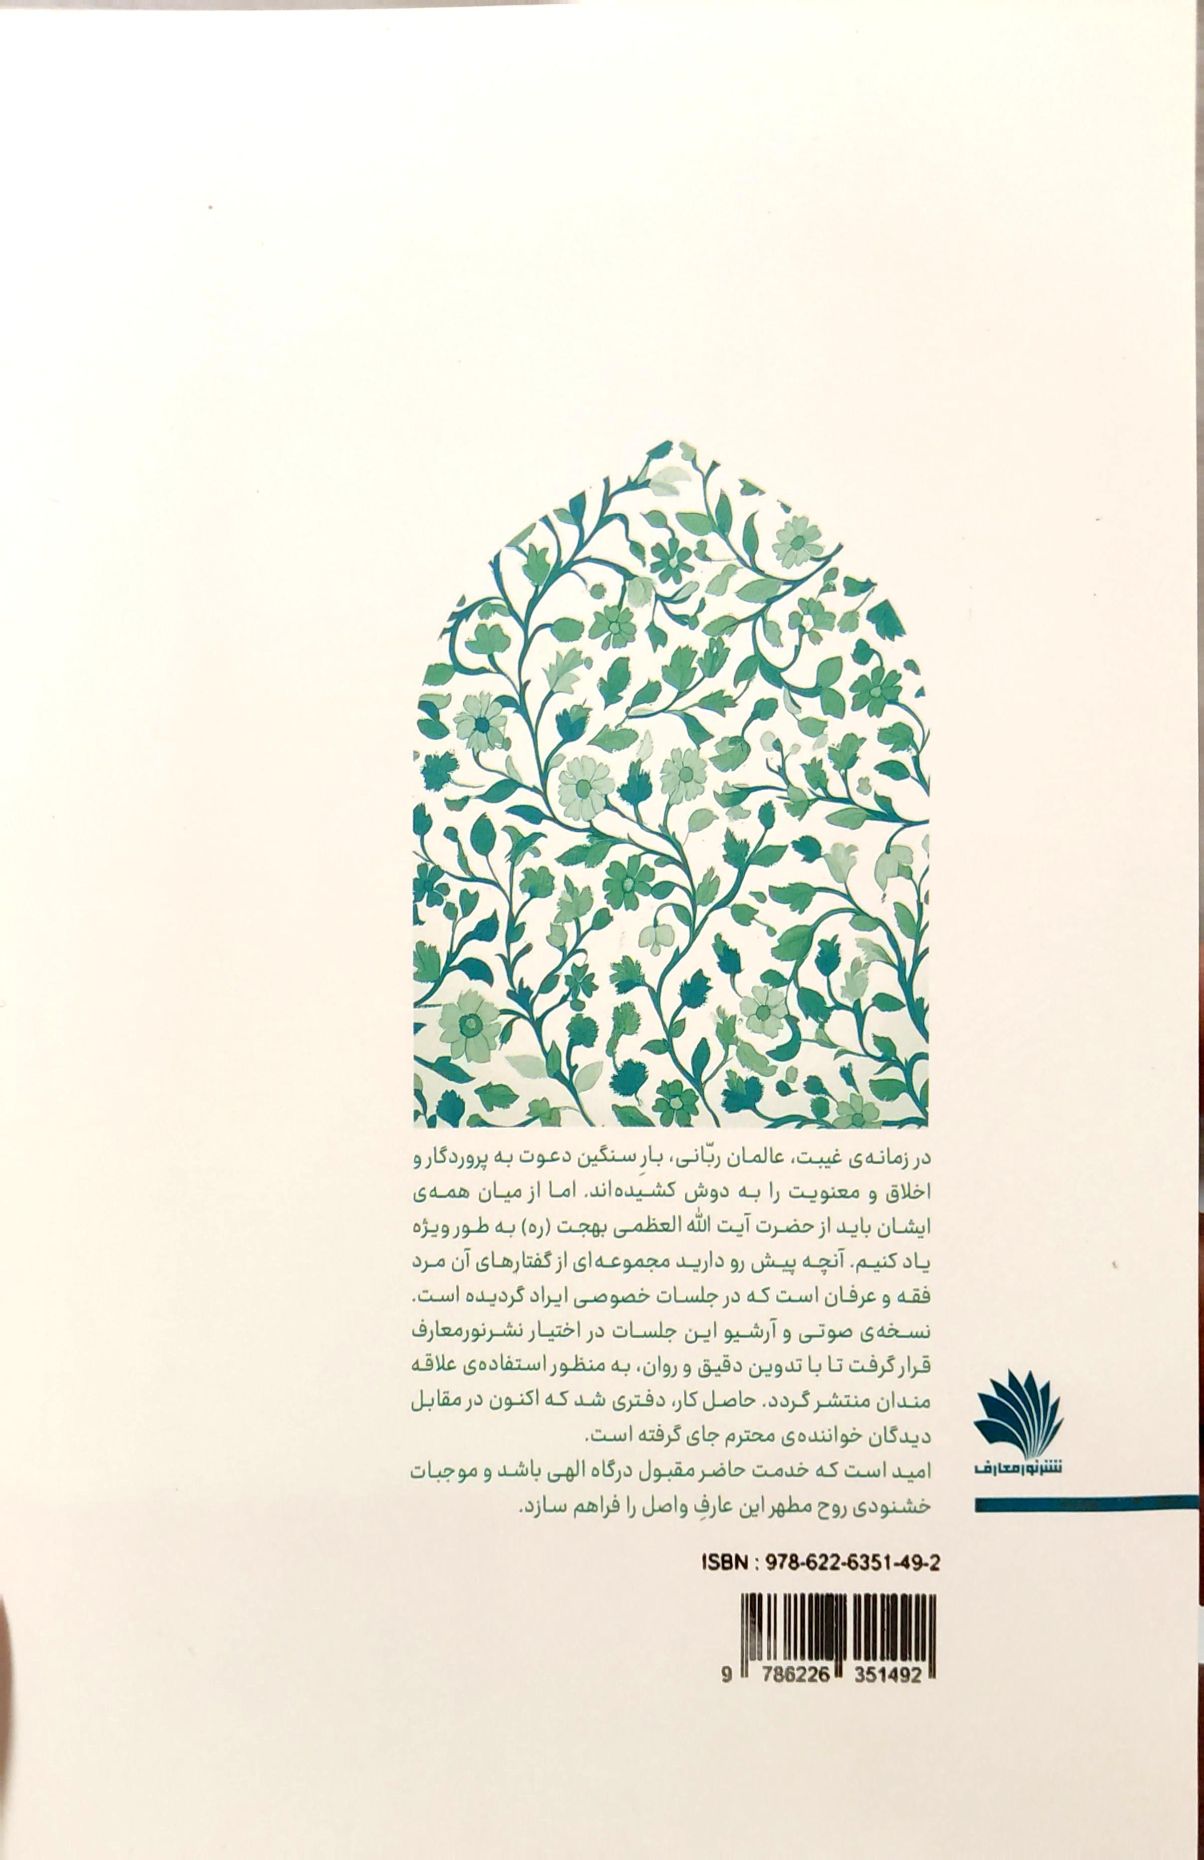 در زمانه‌ی غیبت، عالمان ربّانی، بارِ سنگین دعوت به پروردگار و
اخلاق و معنویت را به دوش کشیده‌اند. اما از میان همه‌ی
ایشان باید از حضرت آیت الله العظمی بهجت (ره) به طور ویژه
یاد کنیم. آنچه پیش رو دارید مجموعه‌ای از گفتارهای آن مرد
فقه و عرفان است که در جلسات خصوصی ایراد گردیده است.
نسخه‌ی صوتی و آرشیو این جلسات در اختیار نشرنورمعارف
قرار گرفت تا با تدوین دقیق و روان، به منظور استفاده‌ی علاقه
مندان منتشر گردد. حاصل کار، دفتری شد که اکنون در مقابل
دیدگان خواننده‌ی محترم جای گرفته است.
امید است که خدمت حاضر مقبول درگاه الهی باشد و موجبات
خشنودی روح مطهر این عارفِ واصل را فراهم سازد.
نشرنورمعارف
ISBN : 978-622-6351-49-2
9 786226 351492